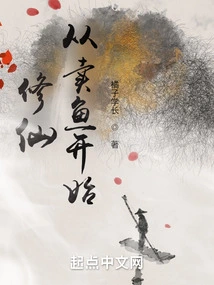 从卖鱼开始
修仙
橘子学长 ◎ 著
起点中文网